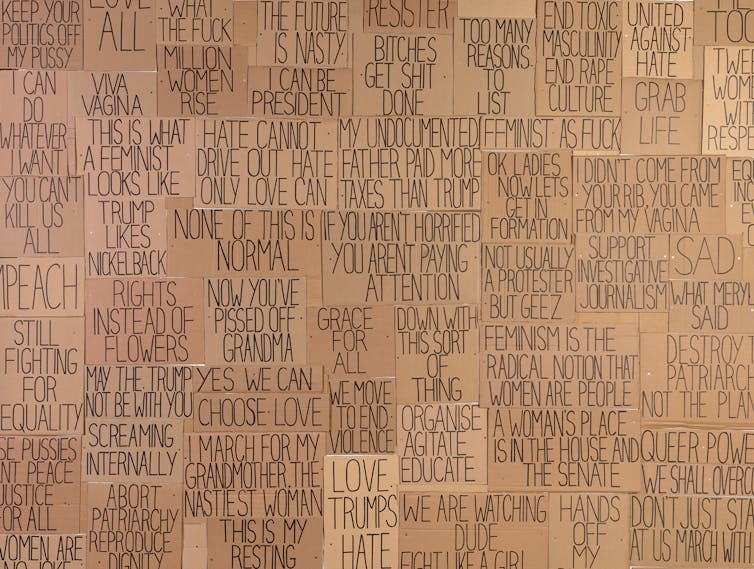 KEEP YOUR
POLITICS OFF
MY PUSSY
LOVE
ALL
WHAT
THE FUCK
THE FUTURE
IS NASTY
RESISTER
TOO MANY
REASONS
TO
LIST
END TOXIC
MASCULINITY
END RAPE
CULTURE
UNITED
AGAINST
HATE
TOO
I CAN
DO
WHATEVER
I WANT
VIVA
VAGINA
MILLION
WOMEN
RISE
I CAN BE
PRESIDENT
BITCHES
GET SHIT
DONE
GRAB
LIFE
TWEE
WOM
WIT
RESP
THIS IS WHAT
A FEMINIST
LOOKS LIKE
HATE CANNOT
DRIVE OUT HATE
ONLY LOVE CAN
MY UNDOCUMENTED
FATHER PAID MORE
TAXES THAN TRUMP
FEMINIST AS FUCK
OK LADIES
NOW LETS
GET IN
FORMATION
I DIDN'T COME FROM
YOUR RIB, YOU CAME
FROM MY VAGINA
YOU CAN'T
KILL US
ALL
TRUMP
LIKES
NICKELBACK
NONE OF THIS IS
NORMAL
IF YOU AREN'T HORRIFIED
YOU ARENT PAYING
ATTENTION
NOT USUALLY
A PROTESTER
BUT GEEZ
SUPPORT
INVESTIGATIVE
JOURNALISM
SAD
WHAT MERYL
SAID
MPEACH
RIGHTS
INSTEAD OF
FLOWERS
NOW YOU'VE
PISSED OFF
GRANDMA
GRACE
FOR
ALL
DOWN WITH
THIS SORT
OF
THING
FEMINISM IS THE
RADICAL NOTION THAT
WOMEN ARE PEOPLE
DESTROY T
PATRIARC
NOT THE PLA
STILL
FIGHTING
FOR
EQUALITY
MAY THE TRUMP
NOT BE WITH YOU
YES WE CAN
CHOOSE LOVE
WE MOVE
TO END
VIOLENCE
ORGANISE
AGITATE
EDUCATE
A WOMAN'S PLACE
IS IN THE HOUSE AND
THE SENATE
QUEER POWE
WE SHALL OVERCO
SCREAMING
INTERNALLY
I MARCH FOR MY
GRANDMOTHER. THE
NASTIEST WOMAN
SE PUSSIES
NT PEACE
JUSTICE
FOR ALL
ABORT
PATRIARCHY
REPRODUCE
DIGNITY
THIS IS MY
RESTING
LOVE
TRUMPS
HATE
WE ARE WATCHING
DUDE
FIGHT LIKE A GIRL
HANDS
OFF
MY
DON'T JUST ST
AT US MARCH WITH
WOMEN ARE
NO JOKE